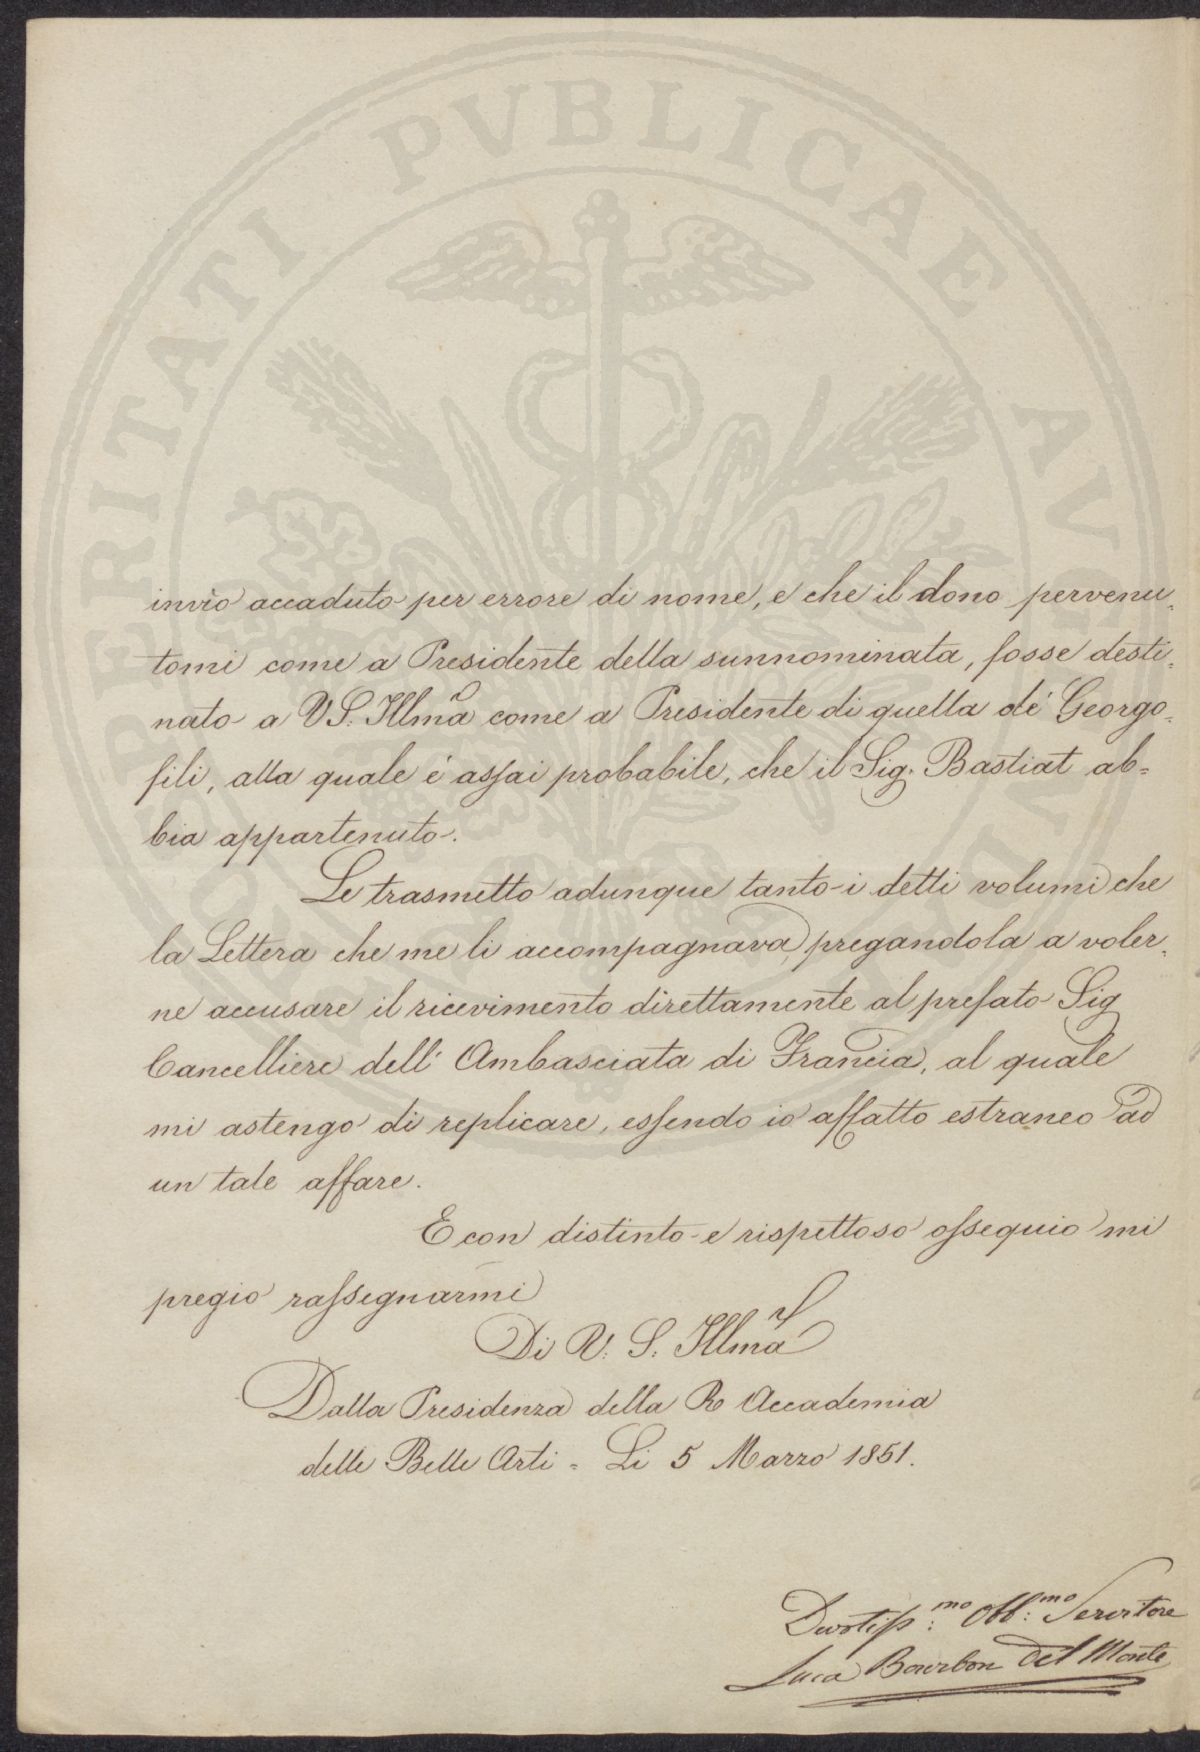 PROSPERITATI PVBLICAE AVGENDAE
invio accaduto per errore di nome, e che il dono pervenu=
tomi come a Presidente della sunnominata, fosse desti=
nato a VS. Illma come a Presidente di quella de' Georgo=
fili, alla quale é assai probabile, che il Sig. Bastiat ab=
bia appartenuto.
Le trasmetto adunque tanto i detti volumi che
la Lettera che me li accompagnava, pregandola a voler=
ne accusare il ricevimento direttamente al prefato Sig
Cancelliere dell' Ambasciata di Francia, al quale
mi astengo di replicare, essendo io affatto estraneo ad
un tale affare.
E con distinto e rispettoso ossequio mi
pregio rassegnarmi
Di V. S. Illma
Dalla Presidenza della R Accademia
delle Belle Arti = Li 5 Marzo 1851.
Devotiss:mo Obb:mo Servitore
Luca Bourbon Del Monte